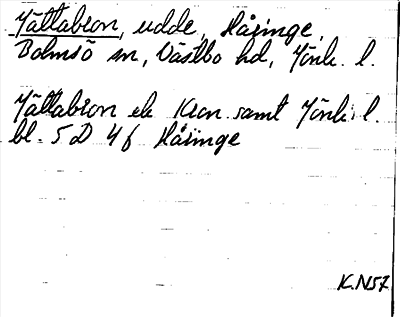 Jättabron, udde, Håringe,
Bolmsö sn, Västbo hd, Jönk. l.
Jättabron ek Kron samt Jönk. l.
bl. 5 D 4 f Håringe
K.N57